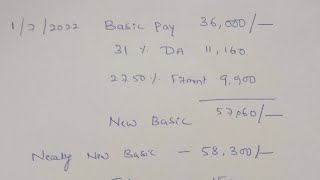 1/7/2022 Basic Pay 36,000/-
31 % DA 11,160
27.50% Fitment 9,900
New Basic 57,060/-
Nearly New Basic - 58,300/-